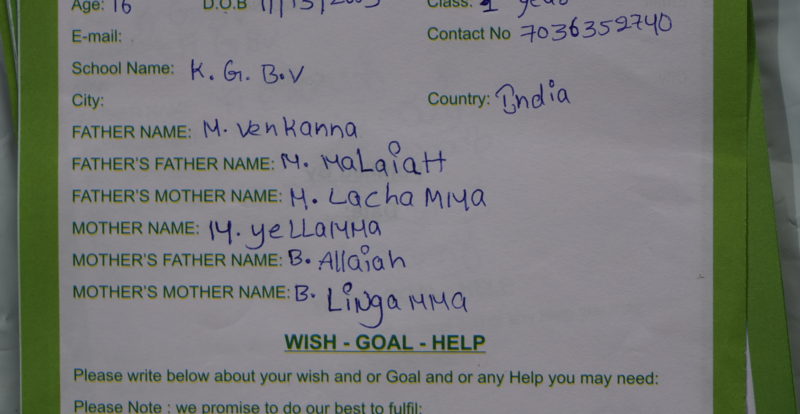 Age: 16 D.O.B Class: 1 year
E-mail: Contact No 7036352740
School Name: K. G. B.V
City: Country: India
FATHER NAME: M. Venkanna
FATHER'S FATHER NAME: M. MaLaiaH
FATHER'S MOTHER NAME: M. Lacha MMa
MOTHER NAME: M. yeLLaMMa
MOTHER'S FATHER NAME: B. Allaiah
MOTHER'S MOTHER NAME: B. LiNgaMMa
WISH - GOAL - HELP
Please write below about your wish and or Goal and or any Help you may need:
Please Note : we promise to do our best to fulfil: